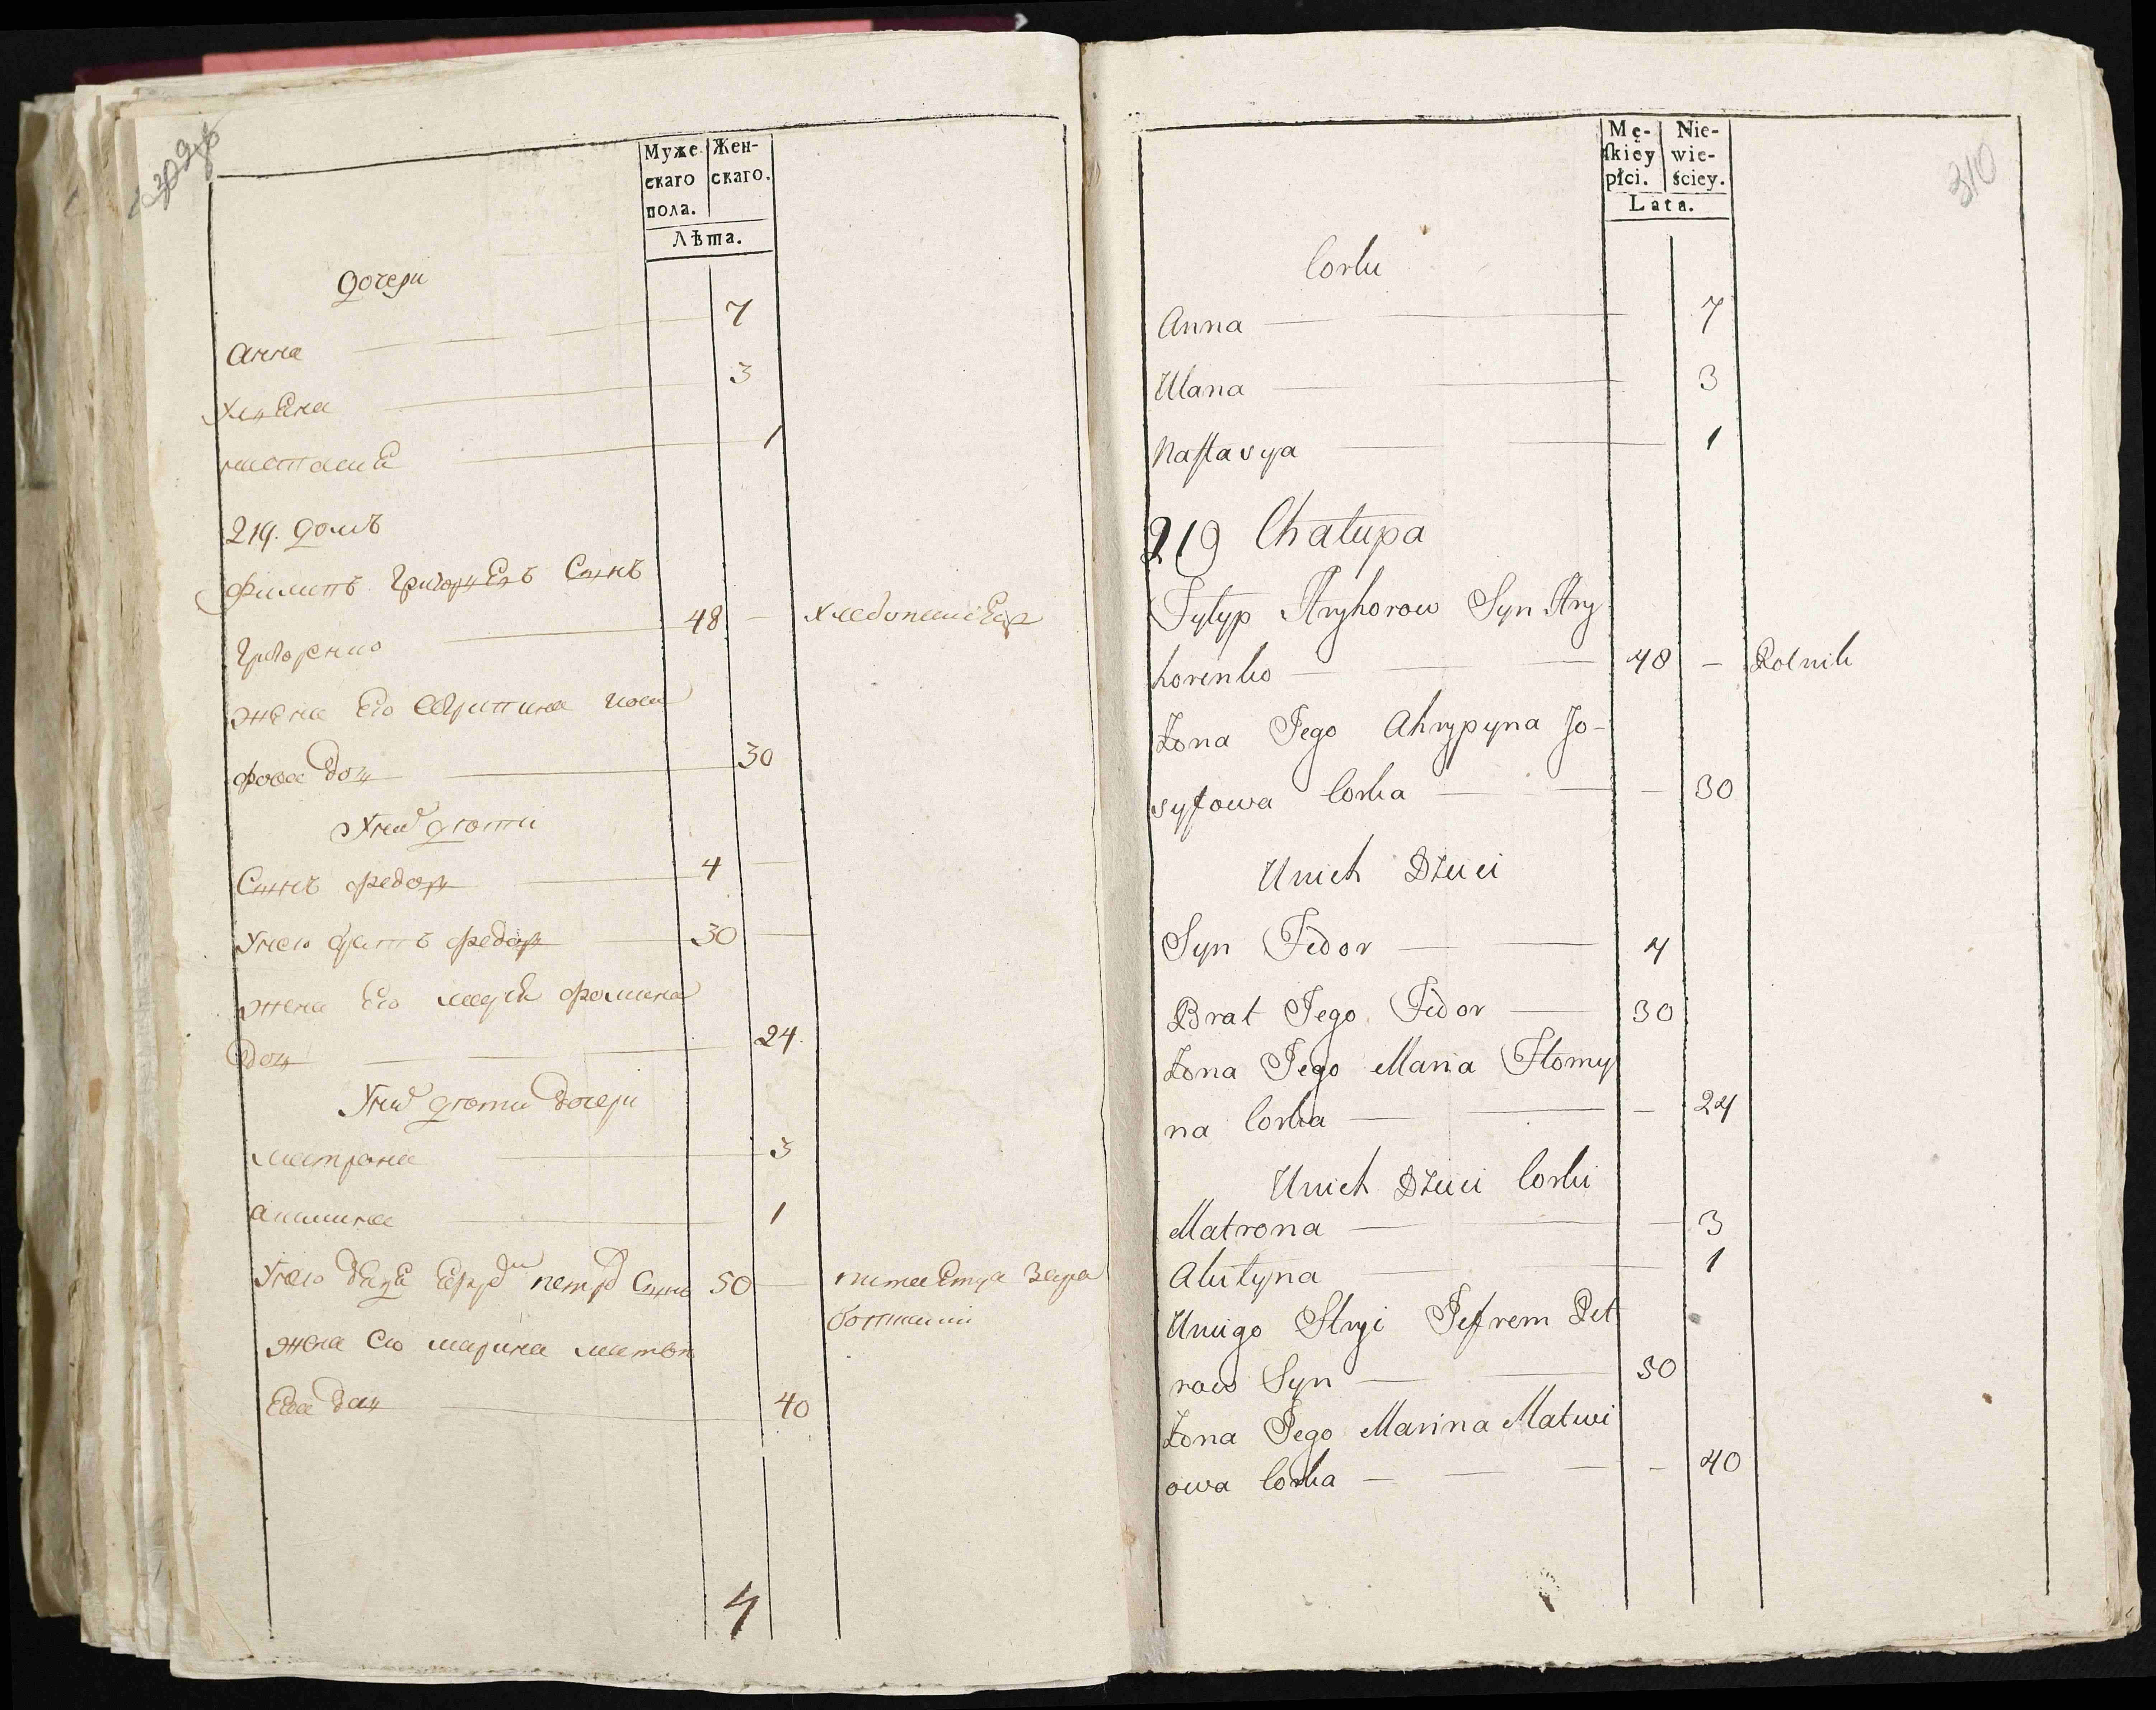 309
Муже
скаго
пола.
Жен-
скаго.
Лѣта.
Дочери
Анна 7
3
Настасия 1
219. Домъ
Филипъ Григорьевъ Сынъ
Григоренко 48 — хлебопашецъ
жена Его Агрипина иоси
фова Доч 30
У них дети
Сынъ Федор 4 —
У него братъ Федор 30 —
жена Его Марья Фомина
Доч 24.
У них дети Дочери
Матрона 3
Акилина 1
У него дядя Ефрем петров Сынъ 50 — питается зара
ботками
жена Его Марина Матве
Ева Доч 40
4
310
Mę-
skiey
płci.
Nie-
wie-
ściey.
Lata.
Corki
Anna 7
Ulana 3
Nastasya 1
219 Chałupa
Fylyp Hryhorow Syn Hry
horenko 48 — Rolnik
Żona Jego Ahrypyna Jo-
syfowa Corka — 30
Unich Dzieci
Syn Fedor 4
Brat Jego Fedor 30
Żona Jego Maria Homy
na Corka — 24
Unich Dzieci Corki
Matrona — 3
Akilyna 1
Uniego Stryi Jefrem Pet
row Syn 50
Żona Jego Marina Matwi
owa Corka — 40